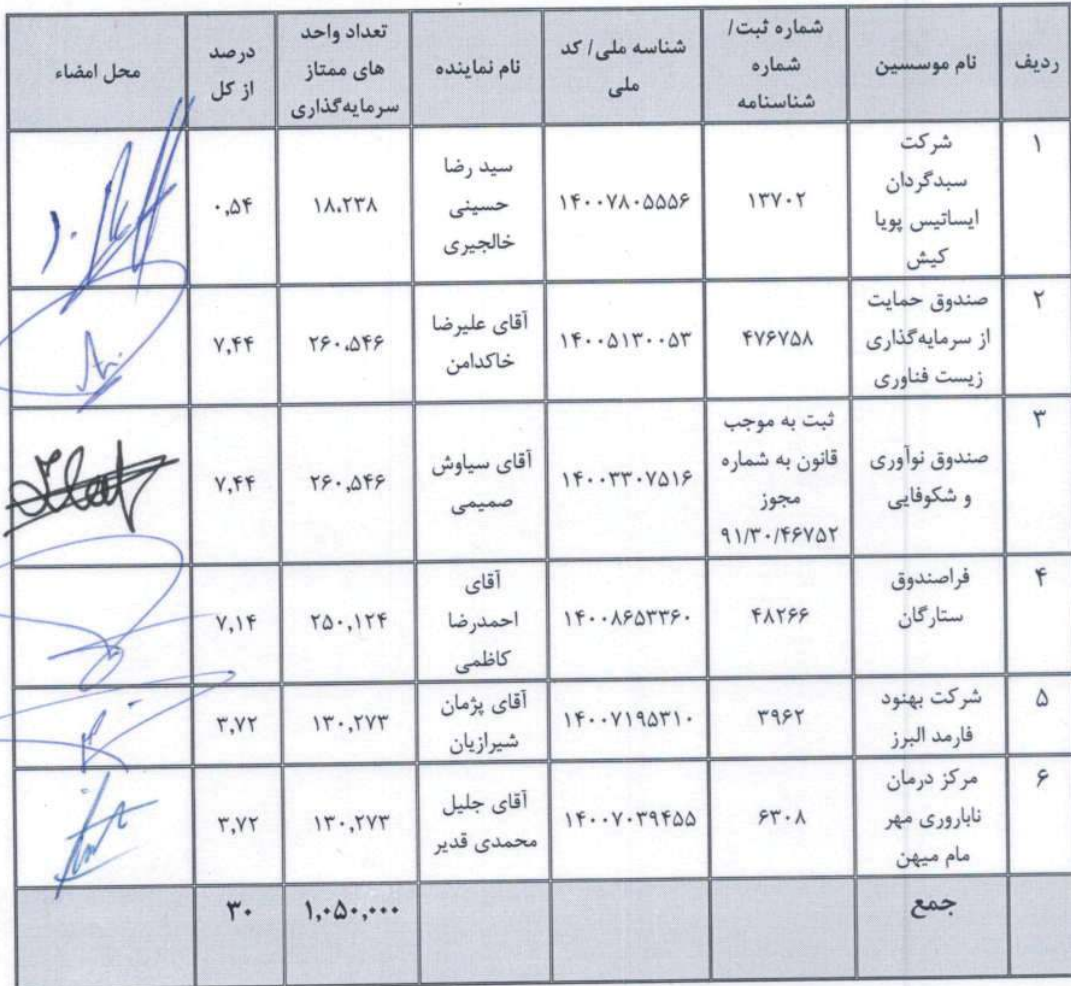 ردیف
نام موسسین
شماره ثبت/
شماره
شناسنامه
شناسه ملی/ کد
ملی
نام نماینده
تعداد واحد
های ممتاز
سرمایه‌گذاری
درصد
از کل
محل امضاء
۱
شرکت
سبدگردان
ایساتیس پویا
کیش
۱۳۷۰۲
۱۴۰۰۷۸۰۵۵۵۶
سید رضا
حسینی
خالجیری
۱۸،۲۳۸
۰,۵۴
۲
صندوق حمایت
از سرمایه‌گذاری
زیست فناوری
۴۷۶۷۵۸
۱۴۰۰۵۱۳۰۰۵۳
آقای علیرضا
خاکدامن
۲۶۰،۵۴۶
۷,۴۴
۳
صندوق نوآوری
و شکوفایی
ثبت به موجب
قانون به شماره
مجوز
۹۱/۳۰/۴۶۷۵۲
۱۴۰۰۳۳۰۷۵۱۶
آقای سیاوش
صمیمی
۲۶۰,۵۴۶
۷,۴۴
۴
فراصندوق
ستارگان
۴۸۲۶۶
۱۴۰۰۸۶۵۳۳۶۰
آقای
احمدرضا
کاظمی
۲۵۰,۱۲۴
۷,۱۴
۵
شرکت بهنود
فارمد البرز
۳۹۶۲
۱۴۰۰۷۱۹۵۳۱۰
آقای پژمان
شیرازیان
۱۳۰,۲۷۳
۳,۷۲
۶
مرکز درمان
ناباروری مهر
مام میهن
۶۳۰۸
۱۴۰۰۷۰۳۹۴۵۵
آقای جلیل
محمدی قدیر
۱۳۰,۲۷۳
۳,۷۲
جمع
۱,۰۵۰,۰۰۰
۳۰